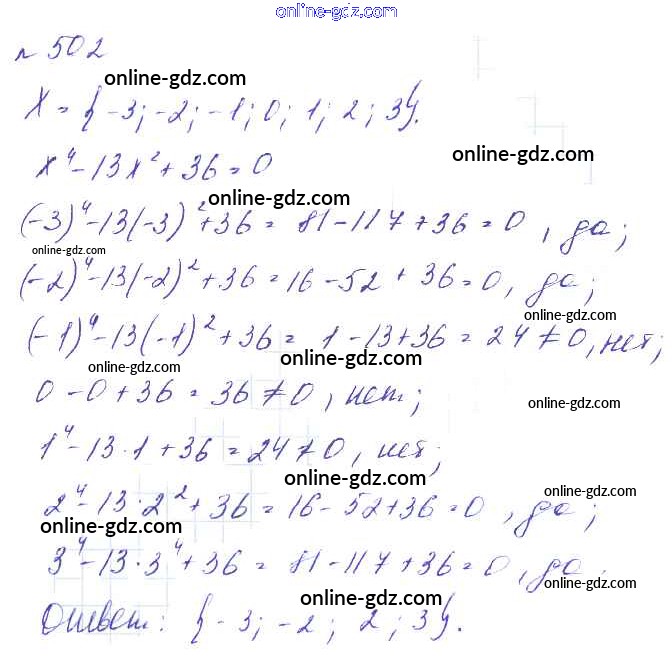 online-gdz.com
№ 502
online-gdz.com
X = {-3; -2; -1; 0; 1; 2; 3}.
online-gdz.com
x⁴ - 13x² + 36 = 0
online-gdz.com
(-3)⁴ - 13(-3)² + 36 = 81 - 117 + 36 = 0, да;
online-gdz.com
(-2)⁴ - 13(-2)² + 36 = 16 - 52 + 36 = 0, да;
online-gdz.com
(-1)⁴ - 13(-1)² + 36 = 1 - 13 + 36 = 24 ≠ 0, нет;
online-gdz.com
online-gdz.com
0 - 0 + 36 = 36 ≠ 0, нет;
online-gdz.com
1⁴ - 13 · 1 + 36 = 24 ≠ 0, нет;
online-gdz.com
online-gdz.com
2⁴ - 13 · 2² + 36 = 16 - 52 + 36 = 0, да;
online-gdz.com
3⁴ - 13 · 3⁴ + 36 = 81 - 117 + 36 = 0, да.
online-gdz.com
online-gdz.com
Ответ: {-3; -2; 2; 3}.
online-gdz.com